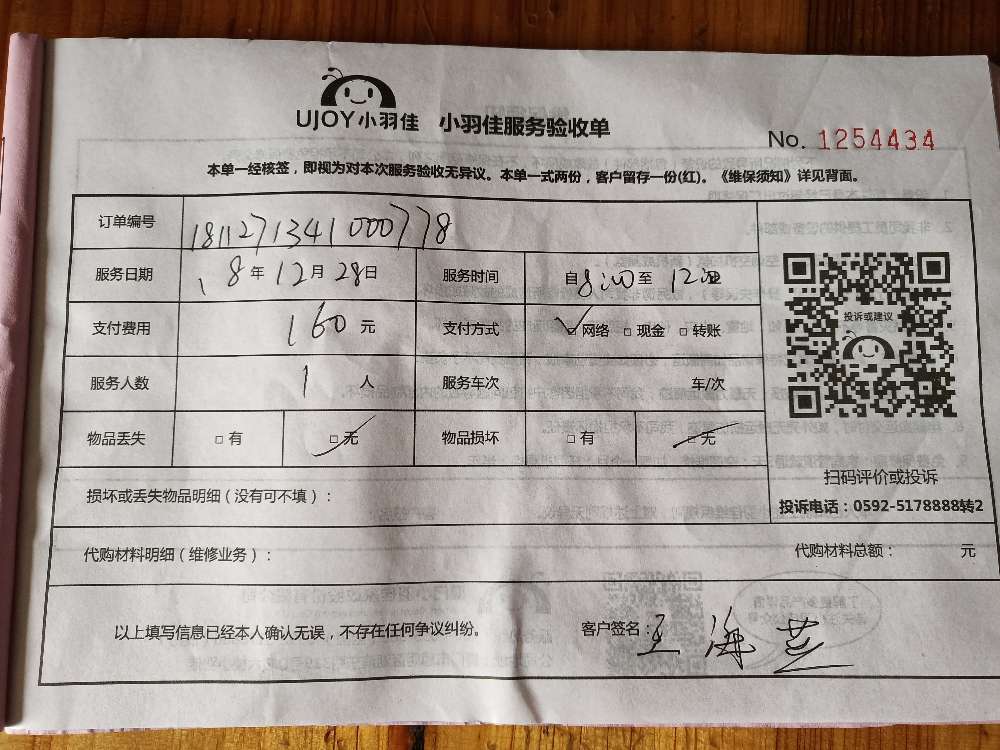 UJOY小羽佳 小羽佳服务验收单
No. 1254434
本单一经核签，即视为对本次服务验收无异议。本单一式两份，客户留存一份(红)。《维保须知》详见背面。
订单编号 1811271341000778
服务日期 18年12月28日 服务时间 自8:00至12:00
支付费用 160元 支付方式 ☑网络 □现金 □转账
服务人数 1人 服务车次 车/次
物品丢失 □有 ☑无 物品损坏 □有 ☑无
投诉或建议
扫码评价或投诉
投诉电话：0592-5178888转2
损坏或丢失物品明细（没有可不填）：
代购材料明细（维修业务）： 代购材料总额： 元
以上填写信息已经本人确认无误，不存在任何争议纠纷。 客户签名：王海芝